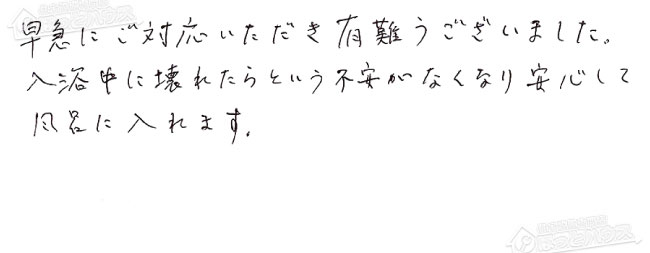 早急にご対応いただき有難うございました。
入浴中に壊れたらという不安がなくなり安心して
風呂に入れます。